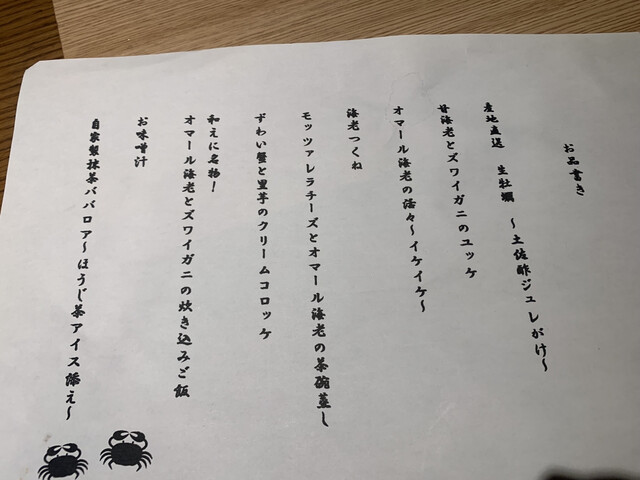 お品書き
産地直送 生牡蠣 ～土佐酢ジュレがけ～
甘海老とズワイガニのユッケ
オマール海老の活々～イケイケ～
海老つくね
モッツァレラチーズとオマール海老の茶碗蒸し
ずわい蟹と里芋のクリームコロッケ
和えに名物！
オマール海老とズワイガニの炊き込みご飯
お味噌汁
自家製抹茶ババロア～ほうじ茶アイス添え～